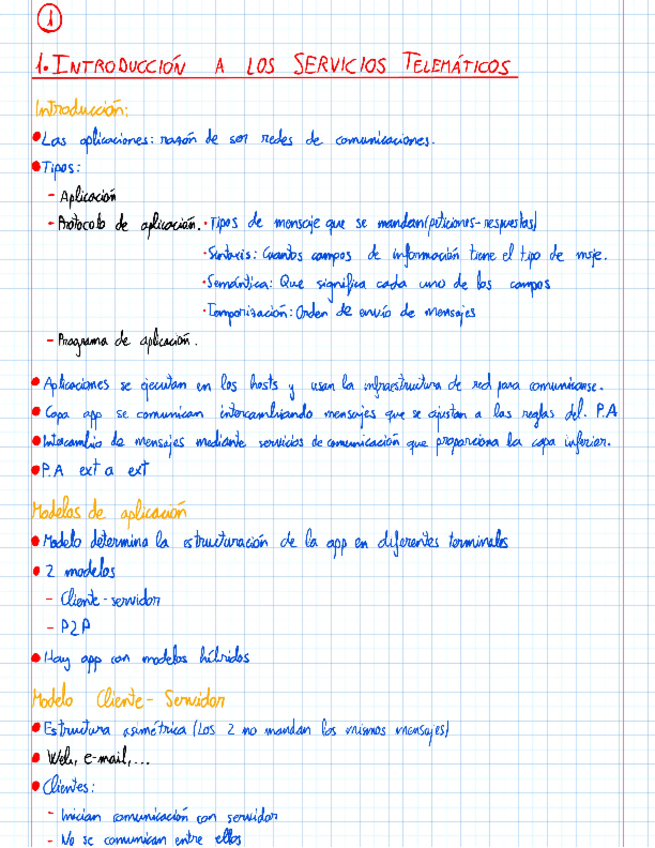 1
1. INTRODUCCIÓN A LOS SERVICIOS TELEMÁTICOS
Introducción:
• Las aplicaciones: razón de ser redes de comunicaciones.
• Tipos:
- Aplicación
- Protocolo de aplicación. · Tipos de mensaje que se mandan (peticiones-respuestas)
· Sintaxis: Cuantos campos de información tiene el tipo de msje.
· Semántica: Que significa cada uno de los campos
· Temporización: Orden de envío de mensajes
- Programa de aplicación.
• Aplicaciones se ejecutan en los hosts y usan la infraestructura de red para comunicarse.
• Capa app se comunican intercambiando mensajes que se ajustan a las reglas del. P.A
• Intercambio de mensajes mediante servicios de comunicación que proporciona la capa inferior.
• P.A ext a ext
Modelos de aplicación
• Modelo determina la estructuración de la app en diferentes terminales
• 2 modelos
- Cliente-servidor
- P2P
• Hay app con modelos híbridos
Modelo Cliente-Servidor
• Estructura asimétrica (Los 2 no mandan los mismos mensajes)
• Web, e-mail,...
• Clientes:
- Inician comunicación con servidor
- No se comunican entre ellos